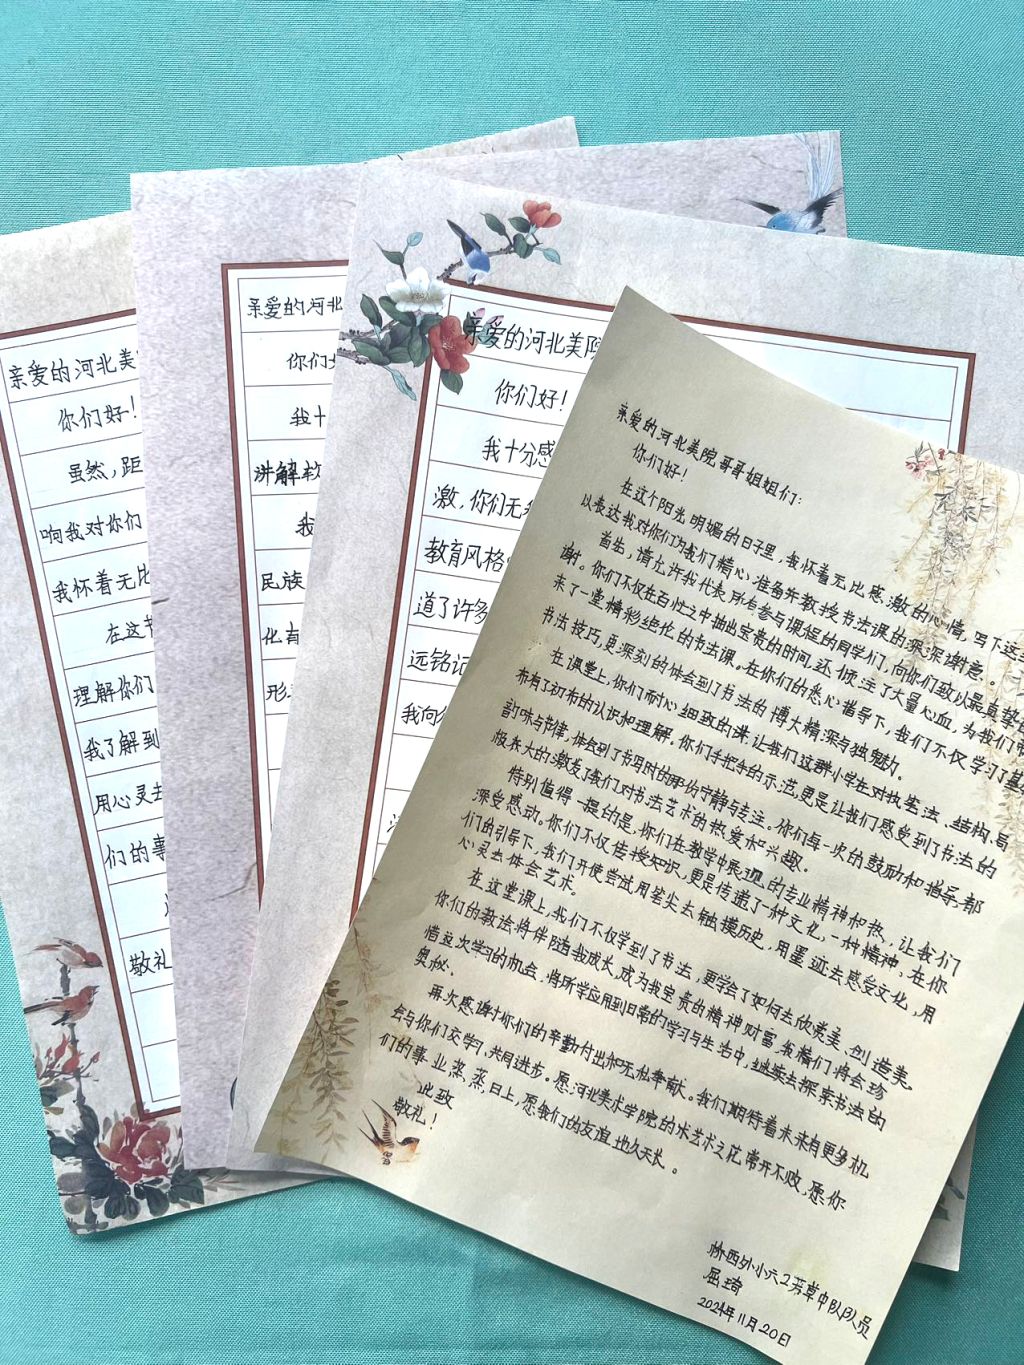 亲爱的河北美
你们好！
虽然，距
响我对你们
我怀着无比
在这节
理解你们
我了解到
用心灵去
们的事
敬礼
亲爱的河北
你们
我十
讲解教
我
民族
化
形
亲爱的河北美院
你们好！
我十分感
激，你们无
教育风格
道了许多
远铭记
我向
亲爱的河北美院哥哥姐姐们：
你们好！
在这个阳光明媚的日子里，我怀着无比感激的心情，写下这
以表达我对你们为我们精心准备并教授书法课的深深谢意。
首先，请允许我代表所有参与课程的同学们，向你们致以最真挚的
谢。你们不仅在百忙之中抽出宝贵的时间，还倾注了大量心血，为我们带
来了一堂精彩绝伦的书法课。在你们的悉心指导下，我们不仅学习了基
书法技巧，更深刻的体会到了书法的博大精深与独魅力。
在课堂上，你们耐心细致的讲，让我们这群小学生对执笔法、结构、局
布有了初布的认识和理解。你们手把手的示范，更是让我们感受到了书法的
韵味与节律，体会到了书写时的那份宁静与专注。你们每一次的鼓励和指导，都
极大的激发了我们对书法艺术的热爱和兴趣。
特别值得一提的是，你们在教学中展现的专业精神和热，让我们
深受感动。你们不仅传授知识，更是传递了一种文化，一种精神，在你
们的引导下，我们开使尝试用笔尖去触摸历史，用墨迹去感受文化，用
心灵去体会艺术。
在这堂课上，我们不仅学到了书法，更学会了如何去欣赏美、创造美。
你们的教诠将伴随我成长，成为我宝贵的精神财富，我们将会珍
惜这次学习的机会，将所学应用到日常的学习与生活中，继续去探索书法的
奥秘。
再次感谢你们的辛勤付出和无私奉献。我们期待着未来有更多机
会与你们交学习、共同进步。愿河北美术学院的术艺术之花常开不败，愿你
们的事业蒸蒸日上，愿我们的友谊地久天长。
此致
敬礼！
桥西外小六卫芳草中队队员
屈琦
2024年11月20日